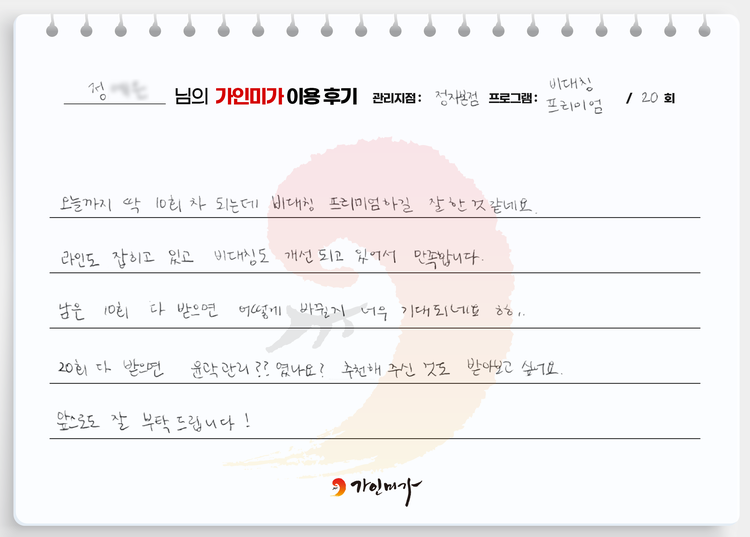 정 님의 가인미가 이용 후기 관리지점 : 정자본점 프로그램 : 비대칭 프리미엄 / 20 회
오늘까지 딱 10회 차 되는데 비대칭 프리미엄하길 잘한 것 같네요.
라인도 잡히고 있고 비대칭도 개선되고 있어서 만족합니다.
남은 10회 다 받으면 어떻게 바뀔지 너무 기대되네요 ㅎㅎ..
20회 다 받으면 윤곽관리?? 였나요? 추천해 주신 것도 받아보고 싶어요.
앞으로도 잘 부탁드립니다!
가인미가